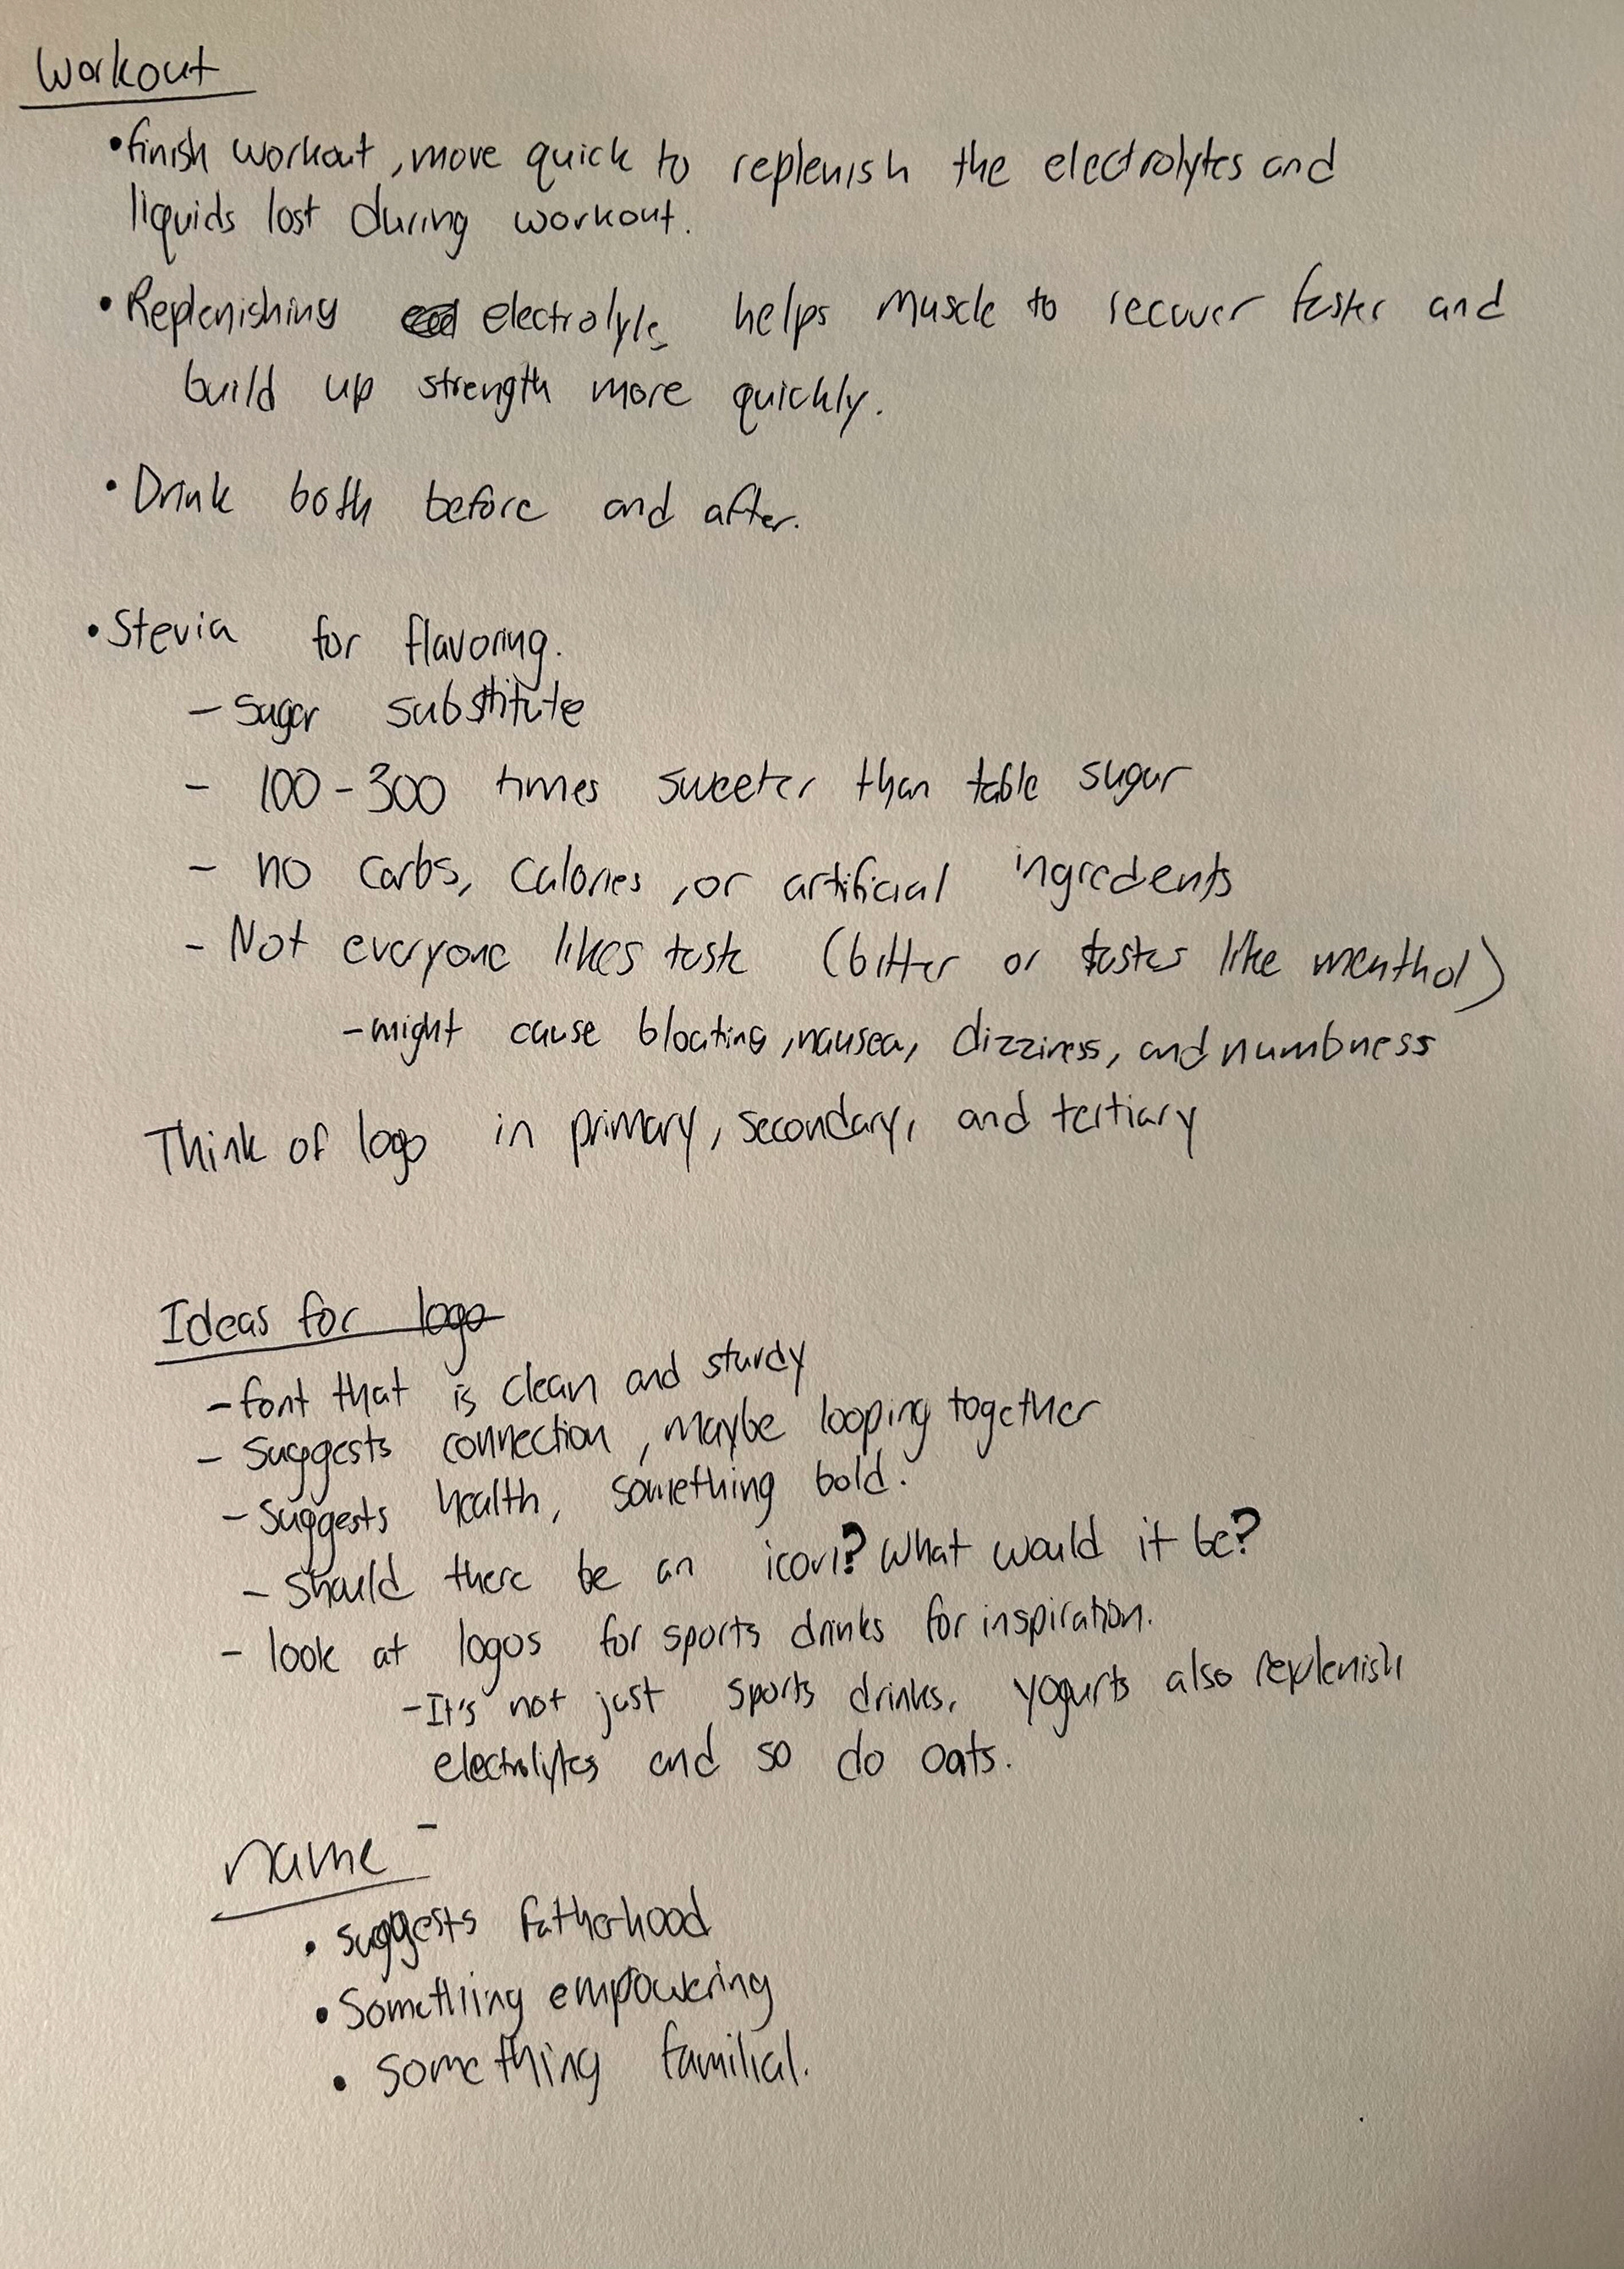 Workout
• finish workout, move quick to replenish the electrolytes and
liquids lost during workout.
• Replenishing electrolyte helps muscle to recover faster and
build up strength more quickly.
• Drink both before and after.
• Stevia for flavoring.
- Sugar substitute
- 100-300 times sweeter than table sugar
- no carbs, calories, or artificial ingredents
- Not everyone likes taste (bitter or tastes like menthol)
- might cause bloating, nausea, dizziness, and numbness
Think of logo in primary, secondary, and tertiary
Ideas for logo
- font that is clean and sturdy
- Suggests connection, maybe looping together
- Suggests health, something bold.
- should there be an icon? What would it be?
- look at logos for sports drinks for inspiration.
- It's not just sports drinks. yogurts also replenish
electrolytes and so do oats.
name -
• suggests fatherhood
• Something empowering
• something familial.